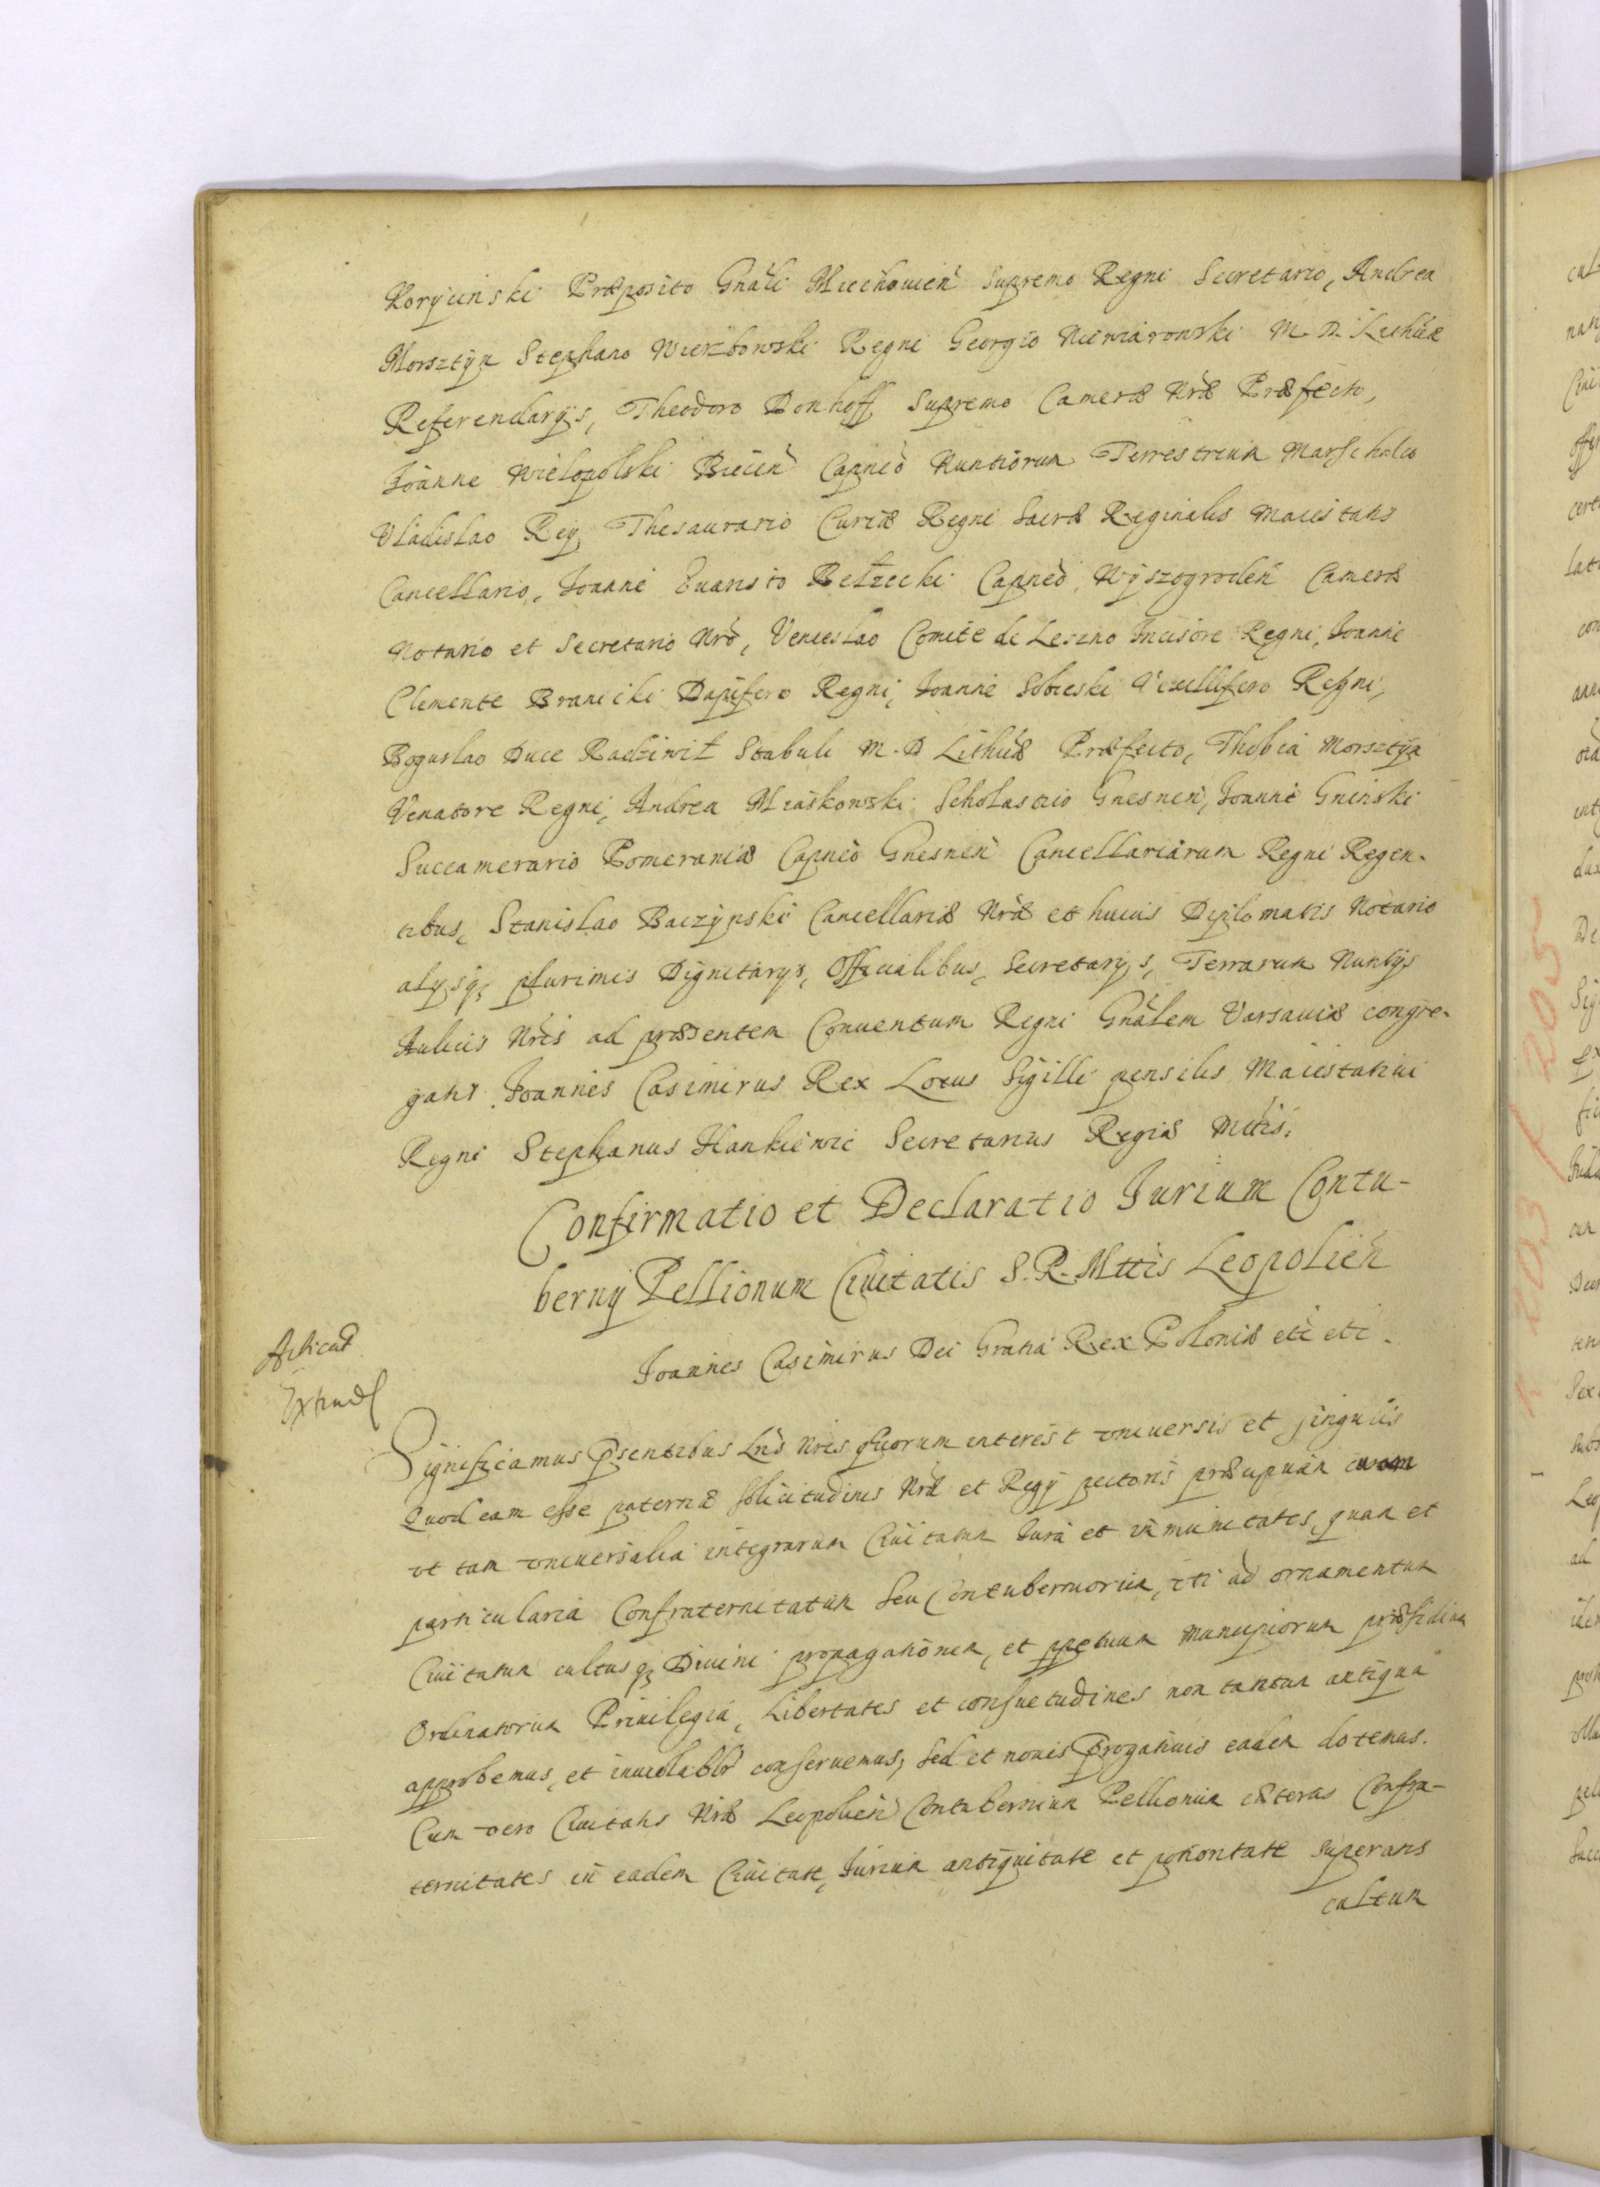 Koryciński Præposito Gnáli Miechouień Supremo Regni Secretario, Andrea
Morsztyn Stephano Wierzbowski Regni Georgio Niewiarowski M. D. Lithúæ
Referendarijs, Theodoro Donhoff Supremo Cameræ Nræ Præfecto,
Joanne Wielopolski Biecén Capneo Nuntiorum Terrestrium Marschalco
Vladislao Rey Thesaurario Curiæ Regni Sacræ Reginalis Maiestatis
Cancellario, Joanne Euaristo Bełzecki Capneo Wyszogrodeń Cameræ
Notario et Secretario Nrõ, Venceslao Comite de Leszno Incisore Regni, Joanne
Clemente Branicki Dapifero Regni, Joanne Sobieski Vexillifero Regni,
Boguslao Duce Radziwił Stabuli M. D Lithúæ Præfecto, Thobia Morsztyn
Venatore Regni, Andrea Miaskowski Scholastico Gnesneń, Joanne Gninski
Succamerario Pomeraniæ Capneo Gnesneń Cancellariarum Regni Regen-
tibus, Stanislao Baczynski Cancellariæ Nræ et huius Diplomatis Notario
alijsq; plurimis Dignitarijs, Officialibus, Secretarijs, Terrarum Nuntijs
Aulicis Nris ad præsentem Conuentum Regni Gnálem Varsauiæ congre-
gatis. Joannes Casimirus Rex Locus Sigilli pensilis Maiestatiui
Regni Stephanus Hankiewic Secretarius Regiæ Mttis.
Confirmatio et Declaratio Jurium Contu-
bernij Pellionum Ciuitatis S. R. Mttis Leopolień
Joannes Casimirus Dei Gratia Rex Poloniæ etc etc.
Significamus Psentibus Lris Nris quorum interest vniuersis et singulis
Quod eam esse paternæ solicitudinis Nræ et Regij pectoris præcipuam curam
vt tam vniuersalia integrarum Ciuitatum Jura et immunitates, quam et
particularia Confraternitatum Seu Contuberniorum, vti ad ornamentum
Ciuitatum cultusq; Diuini propagationem, et ppetuum Municipiorum præsidium
Ordinatorum Priuilegia, Libertates et consuetudines non tantum antiqua
approbemus, et inuiolablr conseruemus, sed et nouis Prrogatiuis eadem dotemus.
Cum vero Ciuitatis Nræ Leopolień Contubernium Pellionum cæteras Confra-
ternitates in eadem Ciuitate, Jurium antiquitate et prioritate superans
cultum